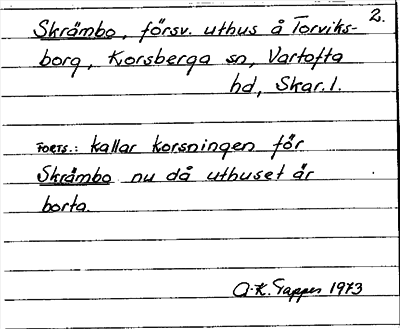 2.
Skrämbo, försv. uthus å Torviks-
borg, Korsberga sn, Vartofta
hd, Skar. l.
FORTS.: kallar korsningen för
Skråmbo nu då uthuset är
borta.
A-K. Tapper 1973